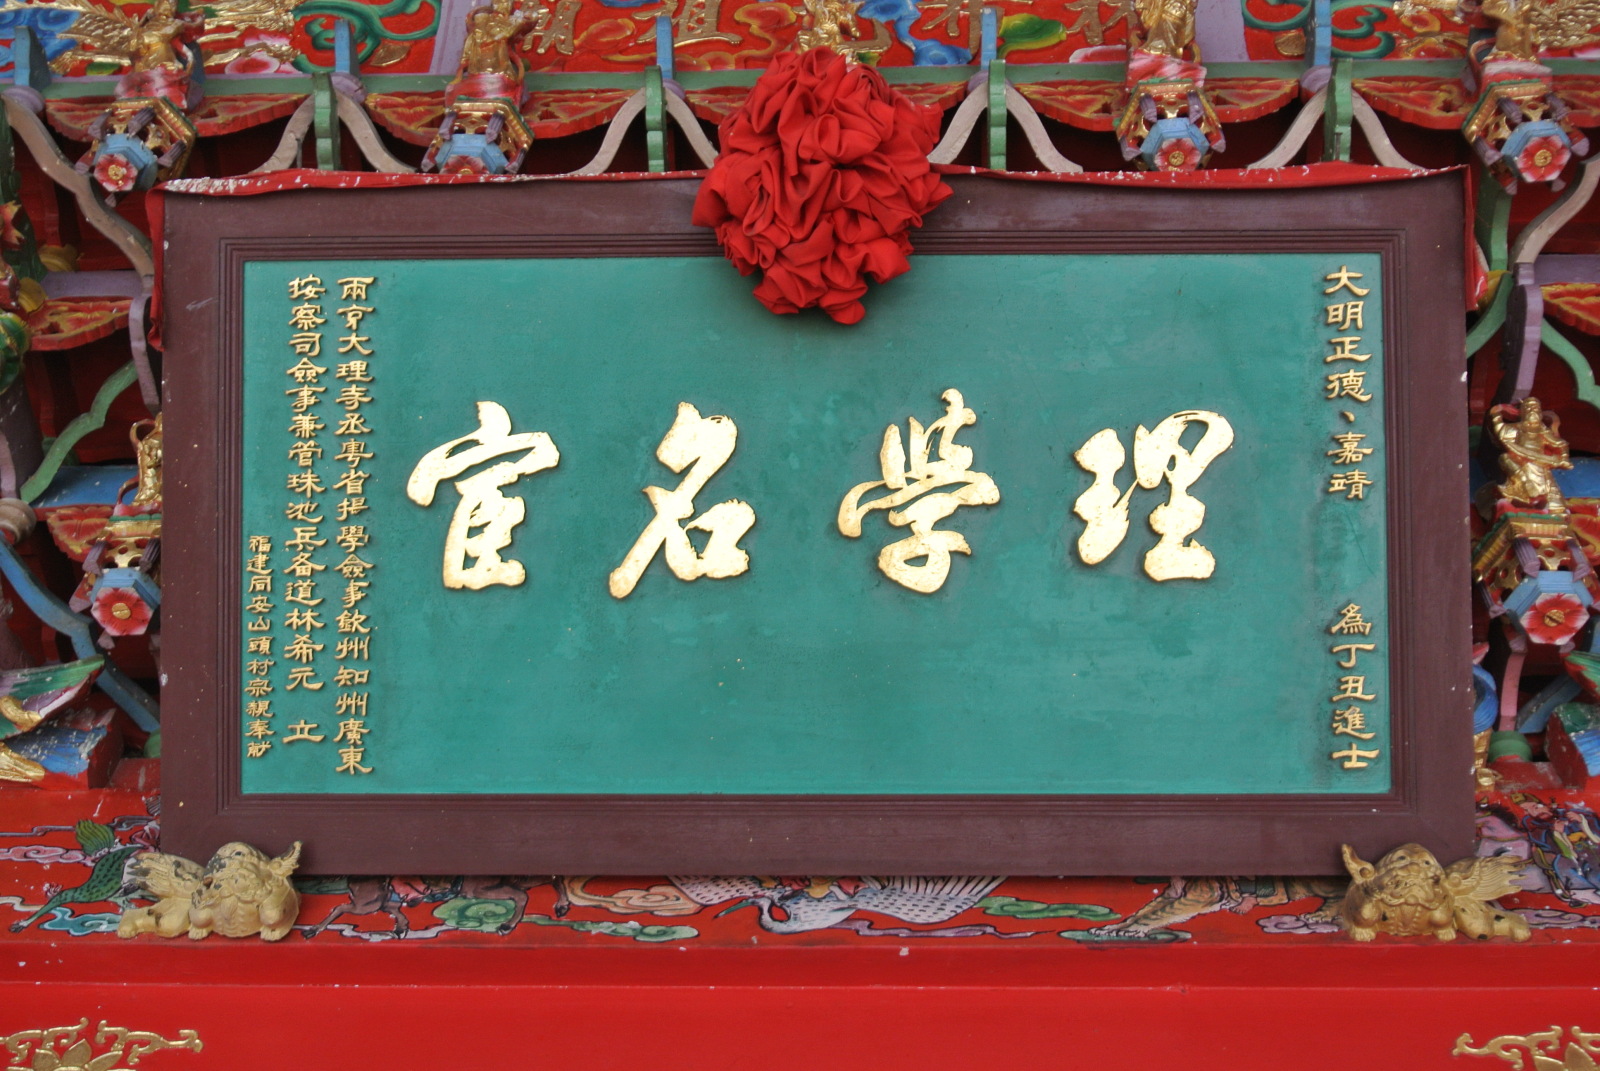 理學名宦
大明正德、嘉靖 為丁丑進士
兩京大理寺丞粵省提學僉事欽州知州廣東
按察司僉事兼管珠池兵备道林希元 立
福建同安山頭村宗親奉献